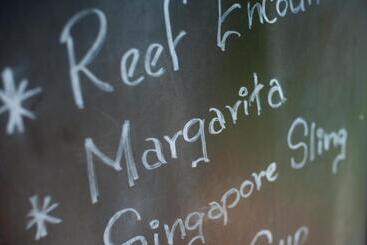 * Reef Encoun
* Margarita
* Singapore Sling